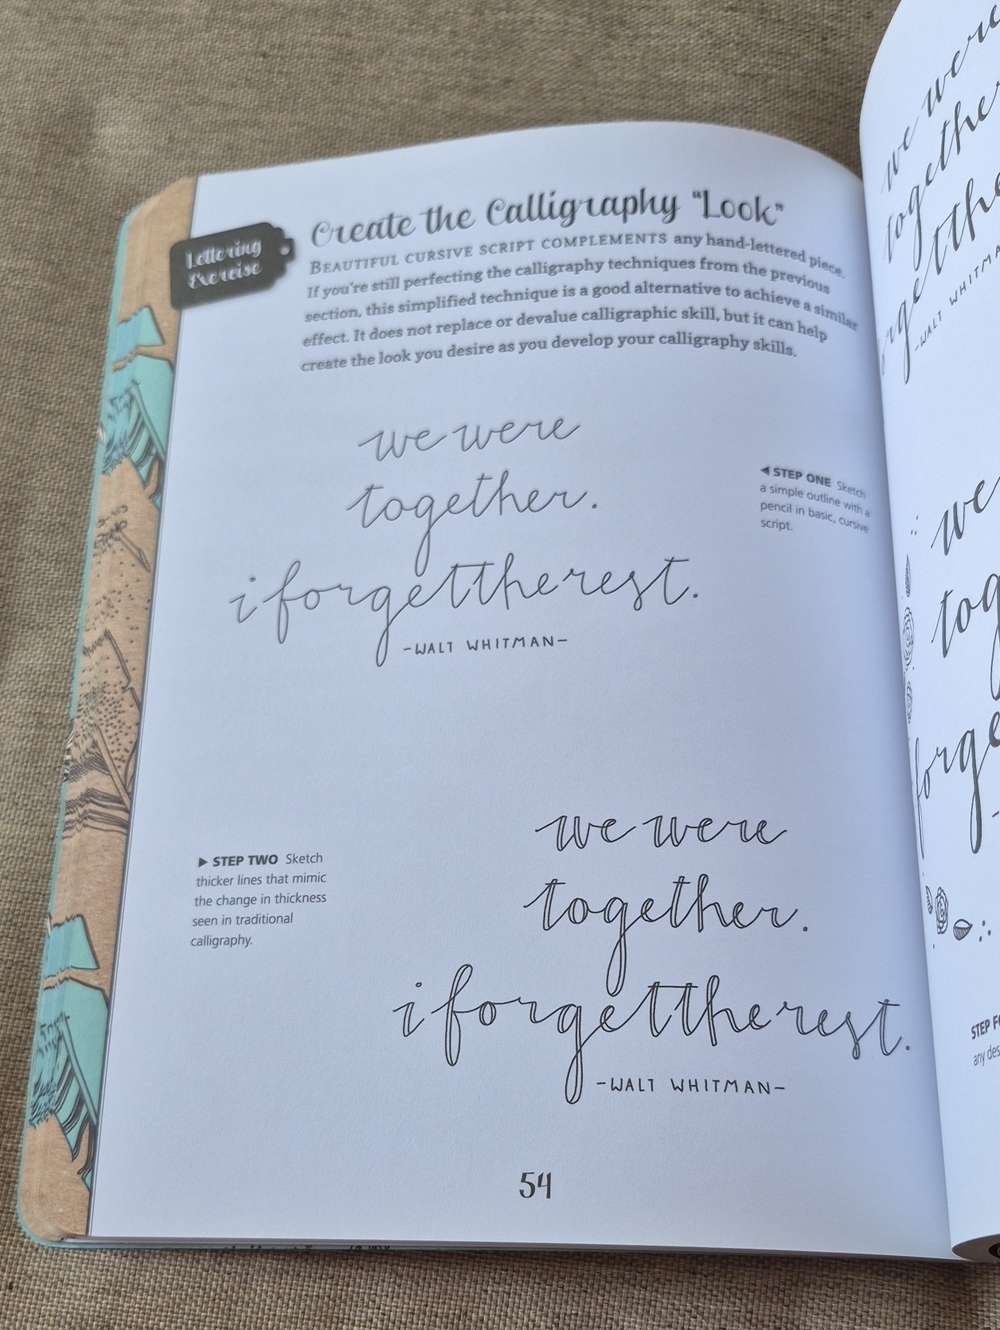 Lettering
Exercise
Create the Calligraphy "Look"
BEAUTIFUL CURSIVE SCRIPT COMPLEMENTS any hand-lettered piece.
If you're still perfecting the calligraphy techniques from the previous
section, this simplified technique is a good alternative to achieve a similar
effect. It does not replace or devalue calligraphic skill, but it can help
create the look you desire as you develop your calligraphy skills.
we were
together.
i forget the rest.
-WALT WHITMAN-
◀ STEP ONE Sketch
a simple outline with a
pencil in basic, cursive
script.
▶ STEP TWO Sketch
thicker lines that mimic
the change in thickness
seen in traditional
calligraphy.
we were
together.
i forget the rest.
-WALT WHITMAN-
54
we were
together
-WALT WHITMAN
we
STEP
any